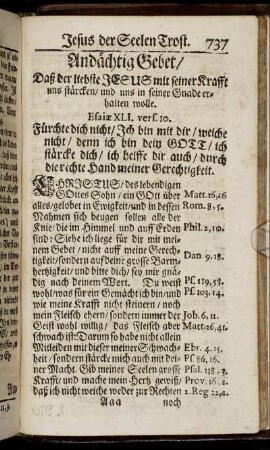 Jesus der Seelen Trost. 737
Andächtig Gebet/
Daß der liebste JESUS mit seiner Krafft
uns stärcken/ und uns in seiner Gnade er-
halten wolle.
Esaiæ XLI. vers. 10.
Fürchte dich nicht/ Ich bin mit dir/ weiche
nicht/ denn ich bin dein GOTT/ ich
stärcke dich/ ich helffe dir auch/ durch
die rechte Hand meiner Gerechtigkeit.
CHRISTUS/ des lebendigen
GOttes Sohn/ ein GOtt über Matt. 16,16
alles/ gelobet in Ewigkeit/ und in dessen Rom. 8,5.
Nahmen sich beugen sollen alle der
Knie/ die im Himmel und auff Erden Phil. 2,10.
sind: Siehe ich liege für dir mit mei-
nem Gebet/ nicht auff meine Gerech-
tigkeit/ sondern auff deine grosse Barm- Dan 9,18.
hertzigkeit/ und bitte dich/ sey mir gnä-
dig nach deinem Wort. Du weist Ps. 119,58.
wohl/ was für ein Gemächt ich bin/ und Ps. 103,14.
wie meine Krafft nicht steinern/ noch
mein Fleisch ehern/ sondern immer der Job. 6,11.
Geist wohl willig/ das Fleisch aber Matt. 26,41.
schwach ist: Darum so habe nicht allein
Mitleiden mit dieser meiner Schwach- Ebr. 4,15.
heit/ sondern stärcke mich auch mit dei- Ps. 86,16.
ner Macht. Gib meiner Seelen grosse Psal. 138,3.
Krafft/ und mache mein Hertz gewiß/ Prov. 16,2.
daß ich nicht weiche weder zur Rechten 2. Reg 22,2.
Aaa noch